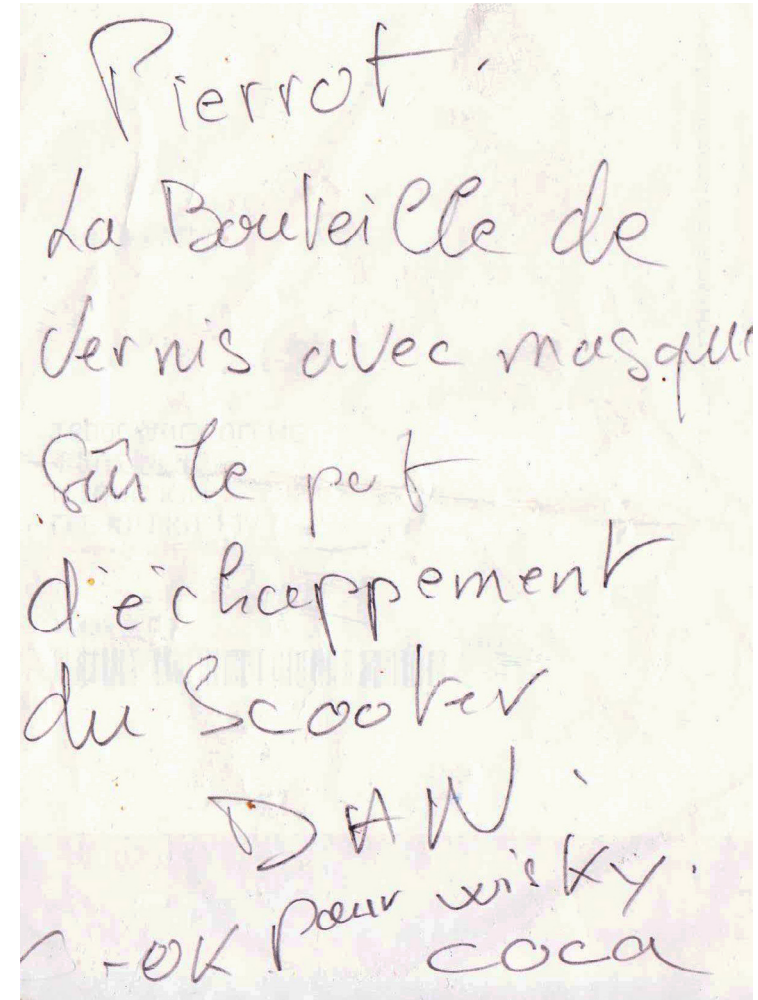 Pierrot.
La Bouteille de
Vernis avec masque
Sûr le pot
d'échappement
du Scooter
DAN
-OK pour wisky.
coca